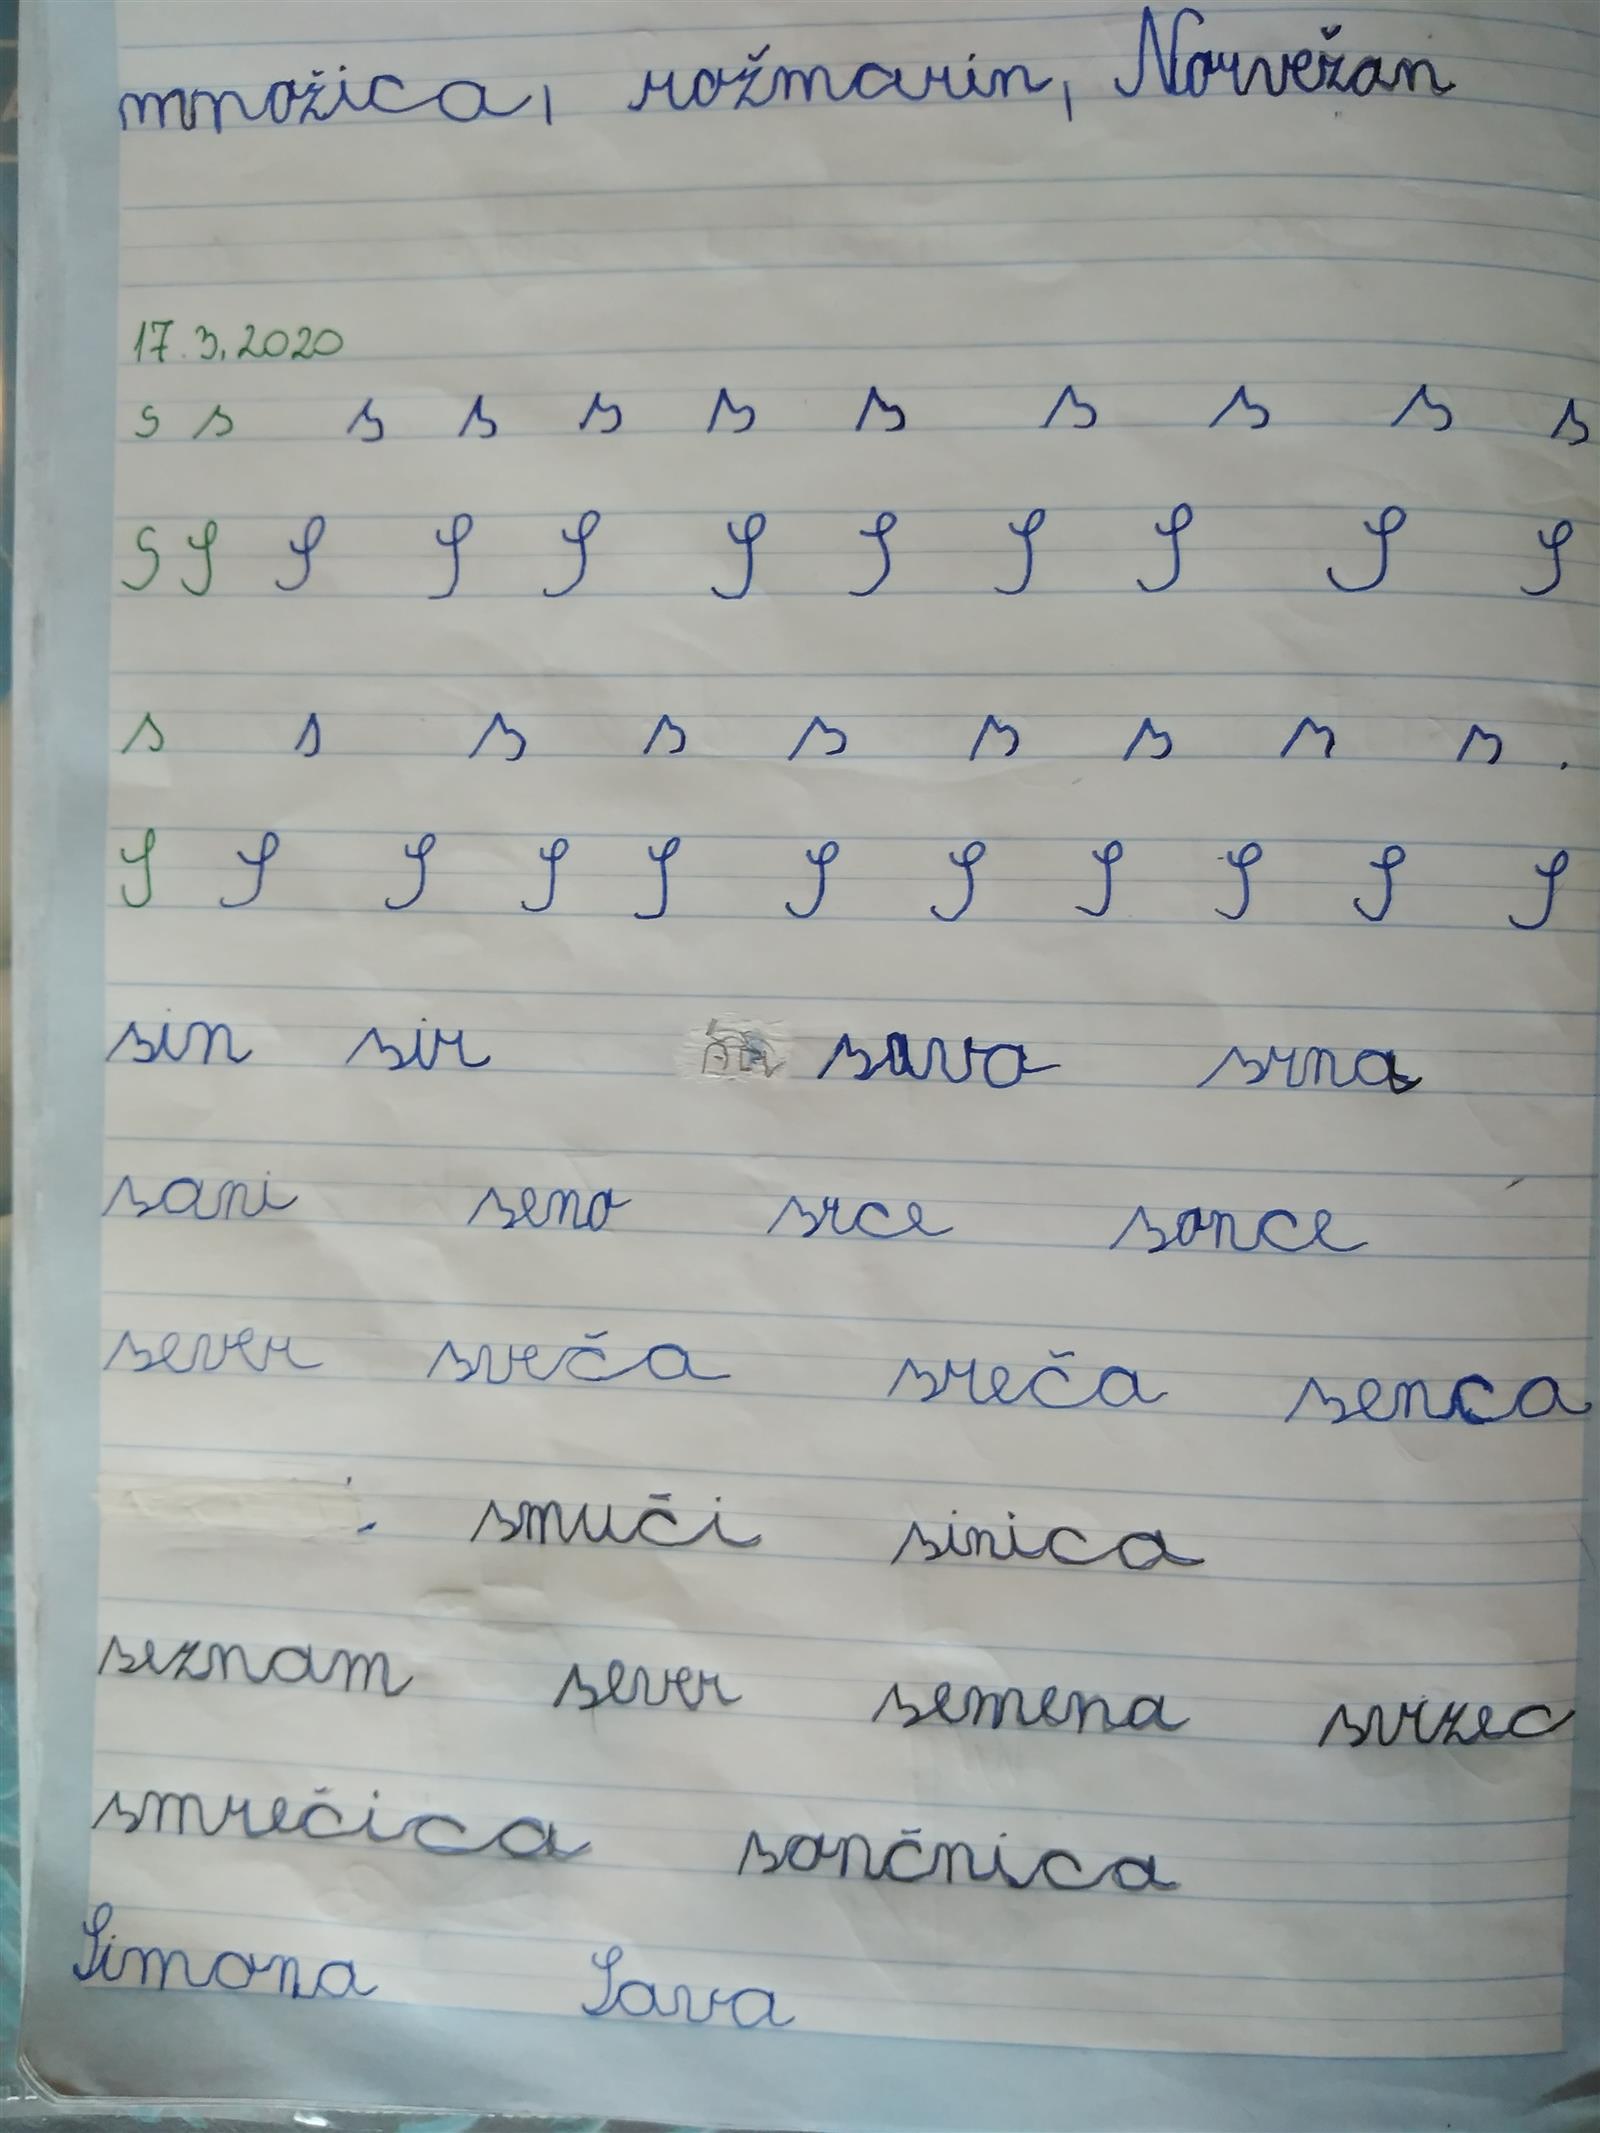 množica, rožmarin, Norvežan
17.3.2020
s s s s s s s s s s s
S S S S S S S S S S S
s s s s s s s s s
S S S S S S S S S S S
sin sir sava srna
sani seno srce sonce
sever sveča sreča senca
smuči sinica
seznam sever semena svizec
smrečica sončnica
Simona Sava